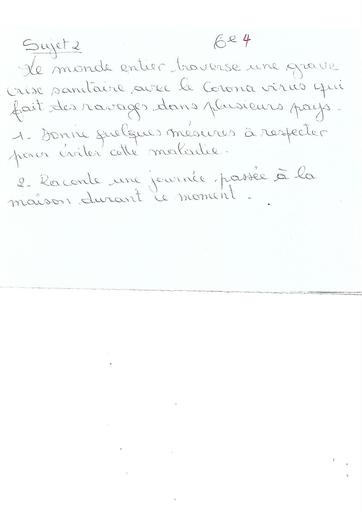 Sujet 2 6e 4
Le monde entier traverse une grave
crise sanitaire avec le Corona virus qui
fait des ravages dans plusieurs pays.
1. Donne quelques mésures à respecter
pour éviter cette maladie.
2. Raconte une journée passée à la
maison durant ce moment.